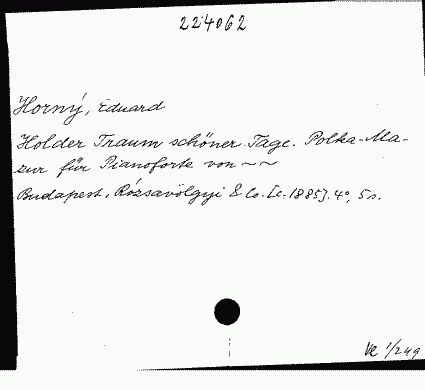 224062
Horný, Eduard
Holder Traum schöner Tage. Polka-Ma-
zur für Pianoforte von ~~
Budapest, Rózsavölgyi & Co. [c. 1885]. 4°, 5 s.
Ve 1/249